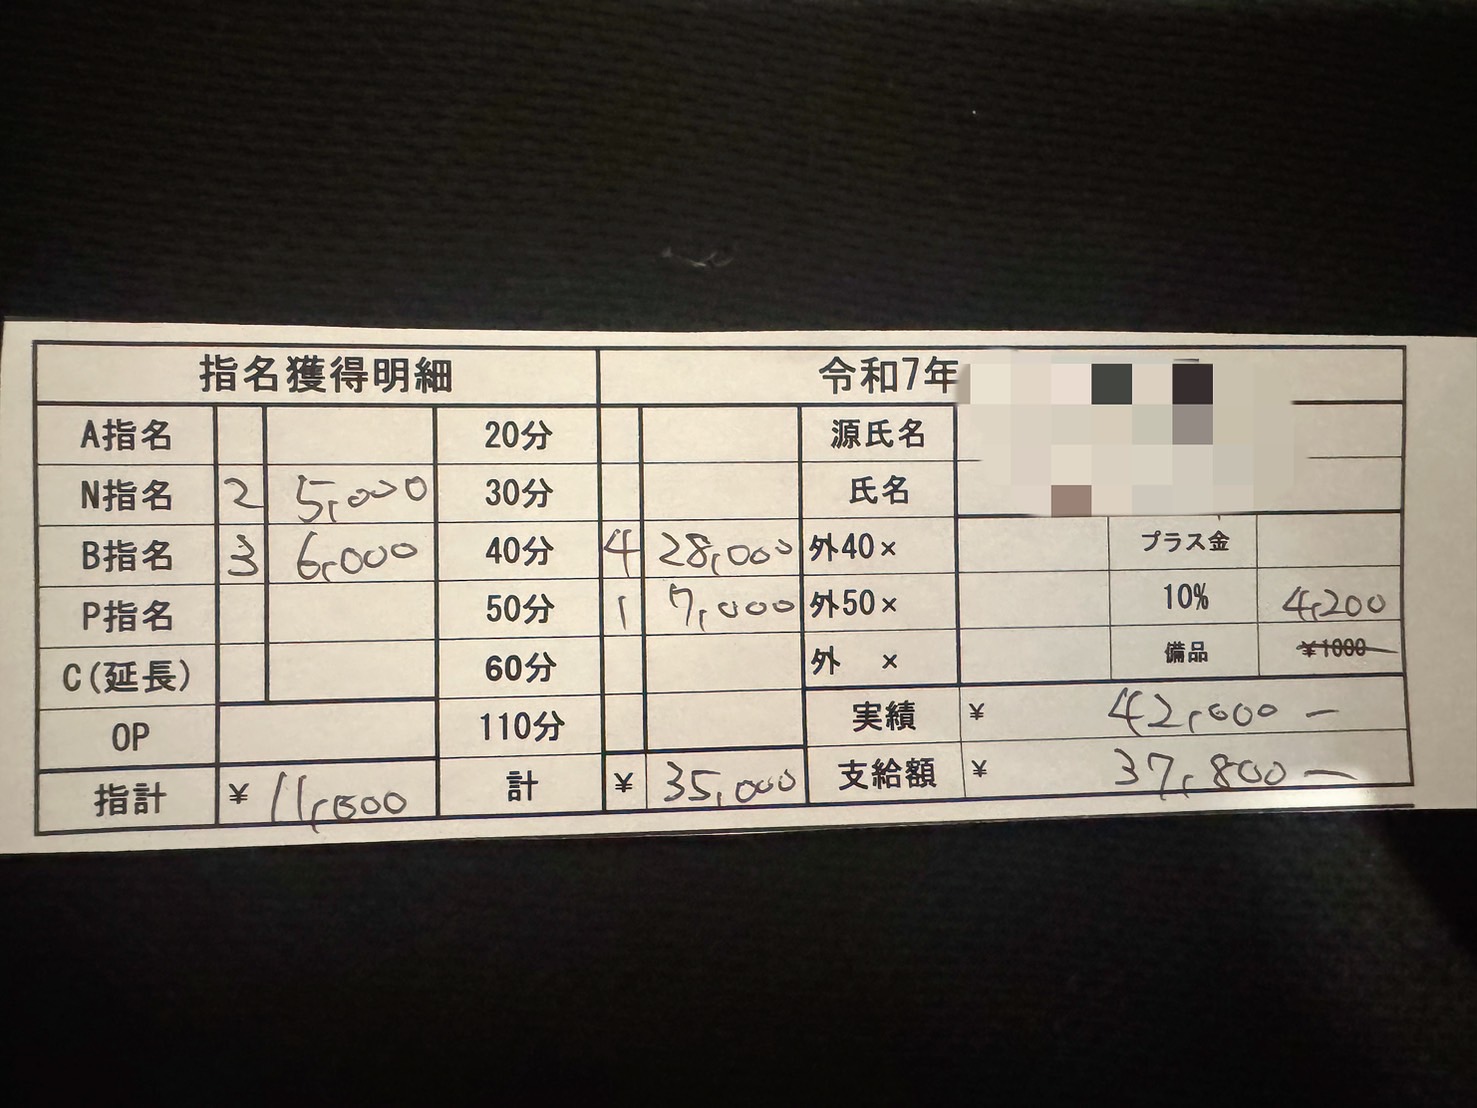 指名獲得明細 令和7年
A指名 20分 源氏名
N指名 2 5,000 30分 氏名
B指名 3 6,000 40分 4 28,000 外40× プラス金
P指名 50分 1 7,000 外50× 10% 4,200
C(延長) 60分 外 × 備品 ¥1000
OP 110分 実績 ¥ 42,000-
指計 ¥ 11,000 計 ¥ 35,000 支給額 ¥ 37,800-